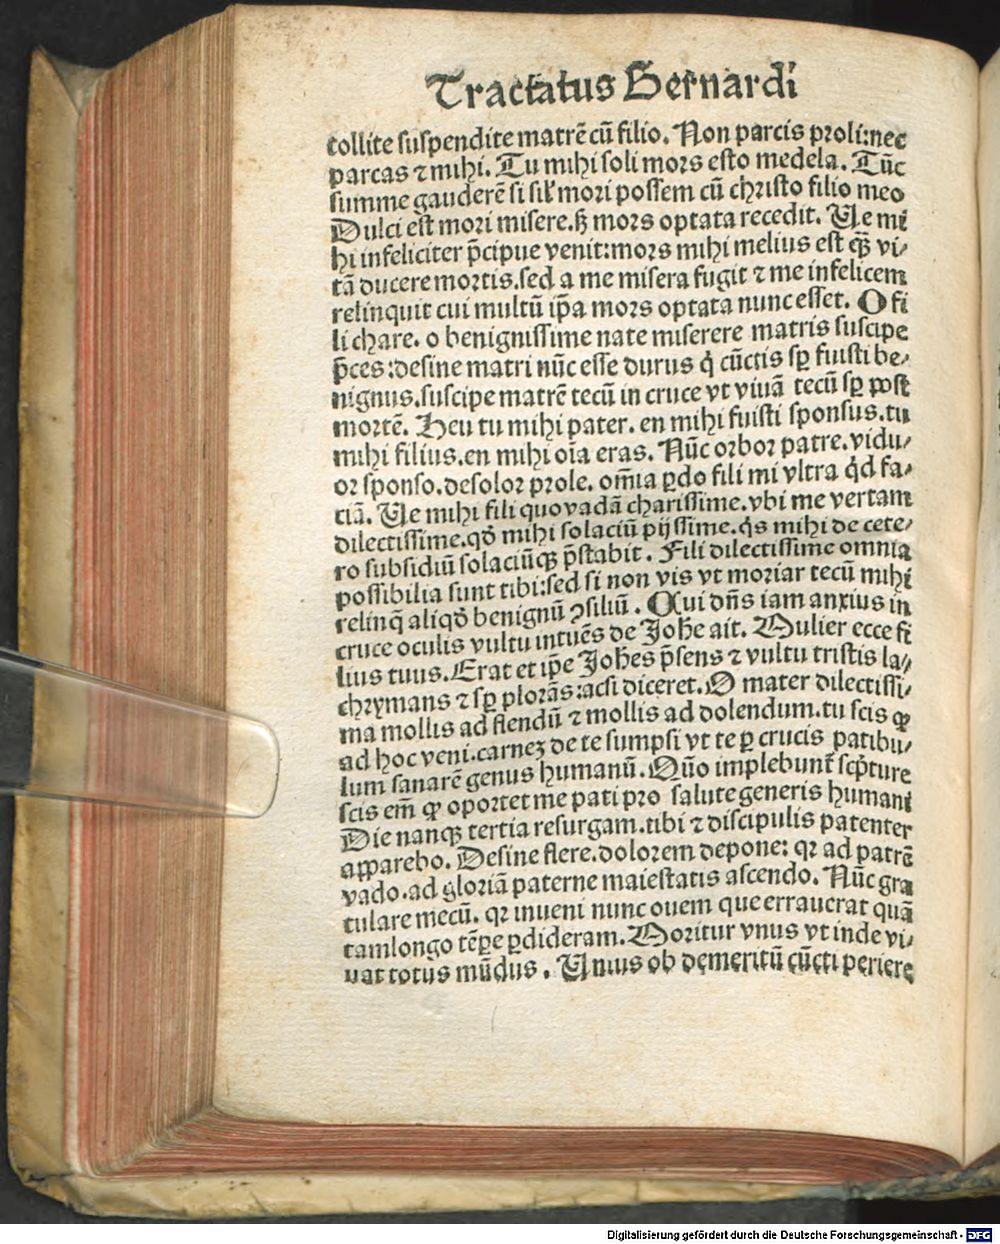 Tractatus Bernardi
tollite suspendite matrē cū filio. Non parcis proli:nec
parcas ⁊ mihi. Tu mihi soli mors esto medela. Tūc
summe gauderē si sil' mori possem cū christo filio meo
Dulci est mori misere.sꝫ mors optata recedit. Ue mi
hi infeliciter p̄cipue venit:mors mihi melius est qꝫ̄ vi⸗
tā ducere mortis.sed a me misera fugit ⁊ me infelicem
relinquit cui multū ip̄a mors optata nunc esset. O fi
li chare. o benignissime nate miserere matris suscipe
p̄ces:desine matri nūc esse durus q̇ cūctis sꝑ fuisti be⸗
nignus.suscipe matrē tecū in cruce vt viuā tecū sꝑ post
mortē. Heu tu mihi pater. en mihi fuisti sponsus.tu
mihi filius.en mihi oīa eras. Nūc orbor patre.vidu⸗
or sponso.desolor prole. om̄ia ꝑdo fili mi vltra q̇d fa⸗
ciā. Ue mihi fili quo vadā charissime.vbi me vertam
dilectissime.qd̄ mihi solaciū pijssime.q̇s mihi de cete⸗
ro subsidiū solaciūqꝫ p̄stabit. Fili dilectissime omnia
possibilia sunt tibi:sed si non vis vt moriar tecū mihi
relinq̄ aliqd̄ benignū ꝯsiliū. Qui dn̄s iam anxius in
cruce oculis vultu intuēs de Joh̄e ait. Mulier ecce fi
lius tuus. Erat et ip̄e Joh̄es p̄sens ⁊ vultu tristis la⸗
chrymans ⁊ sꝑ plorās:acsi diceret. O mater dilectissi⸗
ma mollis ad flendū ⁊ mollis ad dolendum.tu scis ꝙ
ad hoc veni.carneꝫ de te sumpsi vt te ꝑ crucis patibu⸗
lum sanarē genus humanū. Quō implebunt̄ scp̄ture
scis em̄ ꝙ oportet me pati pro salute generis humani
Die nanqꝫ tertia resurgam.tibi ⁊ discipulis patenter
apparebo. Desine flere.dolorem depone: qꝛ ad patrē
vado.ad gloriā paterne maiestatis ascendo. Nūc gra
tulare mecū. qꝛ inueni nunc ouem que errauerat quā
tamlongo tēꝑe ꝑdideram. Moritur vnus vt inde vi⸗
uat totus mūdus. Unius ob demeritū cūcti periere
Digitalisierung gefördert durch die Deutsche Forschungsgemeinschaft - DFG